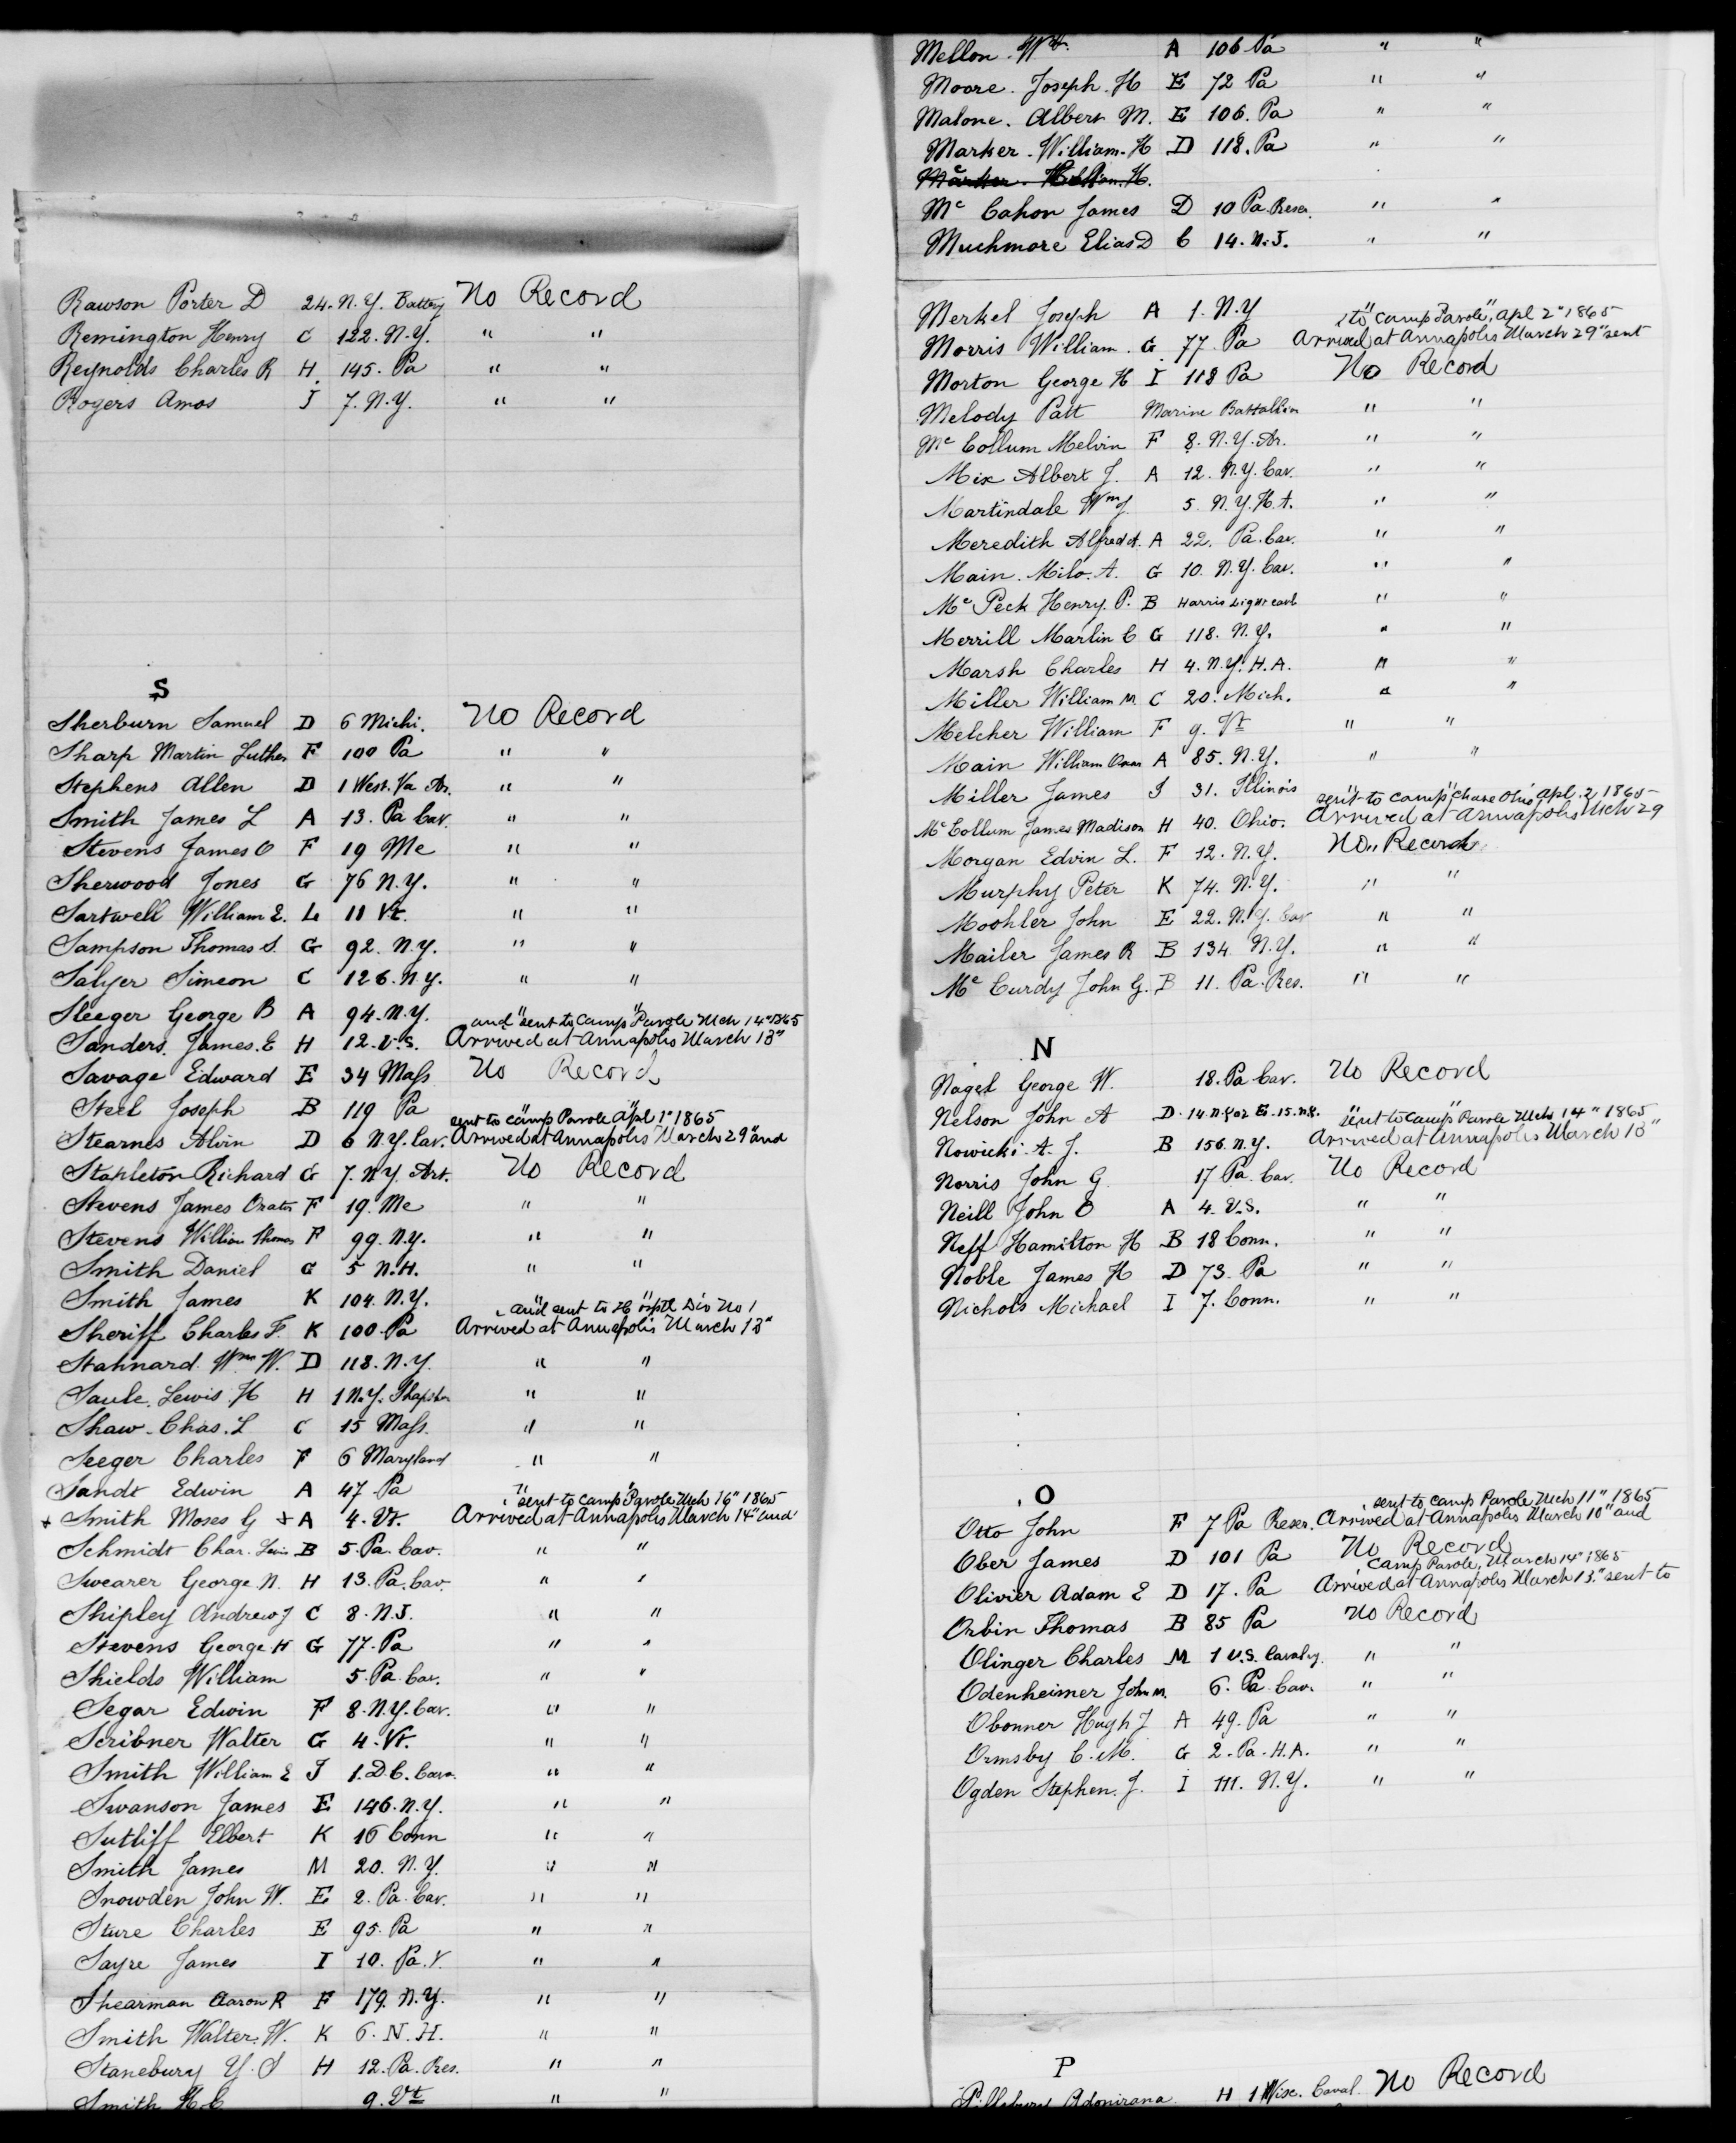 Rawson Porter D 24. N.Y. Battery No Record
Remington Henry C 122. N.Y. " "
Reynolds Charles R H 145. Pa " "
Rogers Amos I 7. N.Y. " "
S
Sherburn Samuel D 6 Michi. No Record
Sharp Martin Luther F 100 Pa " "
Stephens Allen D 1 West. Va Ar. " "
Smith James L A 13. Pa Cav. " "
Stevens James O F 19 Me " "
Sherwood Jones G 76 N.Y. " "
Sartwell William E. L 11 Vt. " "
Sampson Thomas S. G 92. N.Y. " "
Salyer Simeon C 126. N.Y. " "
Sleeger George B A 94. N.Y.
and "sent to Camp "Parole Mch 14" 1865
Sanders. James. E H 12. U.S. Arrived at Annapolis March 13"
Savage Edward E 34 Mass No Record
Steel Joseph B 119 Pa
sent to camp Parole Apl 1" 1865
Stearnes Alvin D 6 N.Y. Cav. Arrived at Annapolis March 29" and
Stapleton Richard G 7. N.Y. Art. No Record
Stevens James Orator F 19. Me " "
Stevens William Thomas F 99. N.Y. " "
Smith Daniel G 5 N.H. " "
Smith James K 104. N.Y. " "
and sent to Hospitl Div No 1
Sheriff Charles F. K 100. Pa Arrived at Annapolis March 13"
Stahnard. Wm W. D 118. N.Y. " "
Saule. Lewis. H H 1 N.Y. " "
Shaw. Chas. L C 15 Mass. " "
Seeger Charles F 6 Maryland " "
Sandt Edwin A 47 Pa "
sent to camp "Parole Mch 16" 1865
x Smith Moses G x A 4. Vt. Arrived at Annapolis March 14" and
Schmidt Char. B 5. Pa. Cav. " "
Swearer George N. H 13. Pa. Cav. " "
Shipley Andrew J C 8. N.J. " "
Stevens George H G 77. Pa " "
Shields William 5. Pa. Cav. " "
Segar Edwin F 8. N.Y. Cav. " "
Scribner Walter G 4. Vt. " "
Smith William E I 1. D.C. Cava. " "
Swanson James E 146. N.Y. " "
Sutliff Elbert K 16 Conn " "
Smith James M 20. N.Y. " "
Snowden John W. E 2. Pa. Cav. " "
Sture Charles E 95. Pa " "
Sayre James I 10. Pa. V. " "
Shearman Aaron R F 179. N.Y. " "
Smith Walter. W. K 6. N.H. " "
Stanebury Y. S H 12. Pa. Res. " "
Smith H. C 9. Vt " "
Mellon. Wm. A 106 Pa " "
Moore. Joseph. H E 72 Pa " "
Malone. Albert M. E 106. Pa " "
Marker. William. H D 118. Pa " "
Mc Cahon James D 10 Pa. Reser. " "
Muchmore Elias D C 14. N.J. " "
Merkel Joseph A 1. N.Y
to "camp Parole", Apl 2" 1865
Morris William. G. 77. Pa Arrived at Annapolis March 29" sent
Morton George H I 118 Pa No Record
Melody Patt Marine Battalion " "
Mc Collum Melvin F 8. N.Y. Ar. " "
Mix Albert J. A 12. N.Y. Cav. " "
Martindale Wm J. 5. N.Y. H. A. " "
Meredith Alfred A. A 22. Pa. Cav. " "
Main. Milo. A. G 10. N.Y. Cav. " "
Mc Peck Henry. P. B Harris Light Cavl " "
Merrill Marlin C G 118. N.Y. " "
Marsh Charles H 4. N.Y. H.A. " "
Miller William M. C 20. Mich. " "
Melcher William F 9. Vt " "
Main William Oscar A 85. N.Y. " "
Miller James I 31. Illinois " "
sent to camp "Chase Ohio" Apl. 2 1865
Mc Collum James Madison H 40. Ohio. Arrived at Annapolis Mch 29
Morgan Edvin L. F 12. N.Y. No Record
Murphy Peter K 74. N.Y. " "
Moohler John E 22. N.Y. Cav " "
Mailer James R B 134 N.Y. " "
Mc Curdy John G. B 11. Pa. Res. " "
N
Nagel George W. 18. Pa Cav. No Record
Nelson John A D. 14. N.Y or E. 15. N.Y.
sent to camp "Parole Mch 14" 1865
Nowicki. A. J. B 156. N.Y. Arrived at Annapolis March 13"
Norris John G 17 Pa. Cav. No Record
Neill John O A 4. U.S. " "
Neff Hamilton H B 18 Conn. " "
Noble James H D 73. Pa " "
Nichols Michael I 7. Conn. " "
O
sent to camp Parole Mch 11" 1865
Otto John F 7 Pa Reser. Arrived at Annapolis March 10" and
Ober James D 101 Pa No Record
Camp Parole, March 14" 1865
Olivier Adam E D 17. Pa Arrived at Annapolis March 13." sent to
Orbin Thomas B 85 Pa No Record
Olinger Charles M 1 U.S. Cavalry. " "
Odenheimer John M. 6. Pa Cav. " "
Obonner Hugh J A 49. Pa " "
Ormsby C. M. G 2. Pa. H.A. " "
Ogden Stephen. J. I 111. N.Y. " "
P
Pillsbury Adonirana H 1 Wisc. Caval. No Record